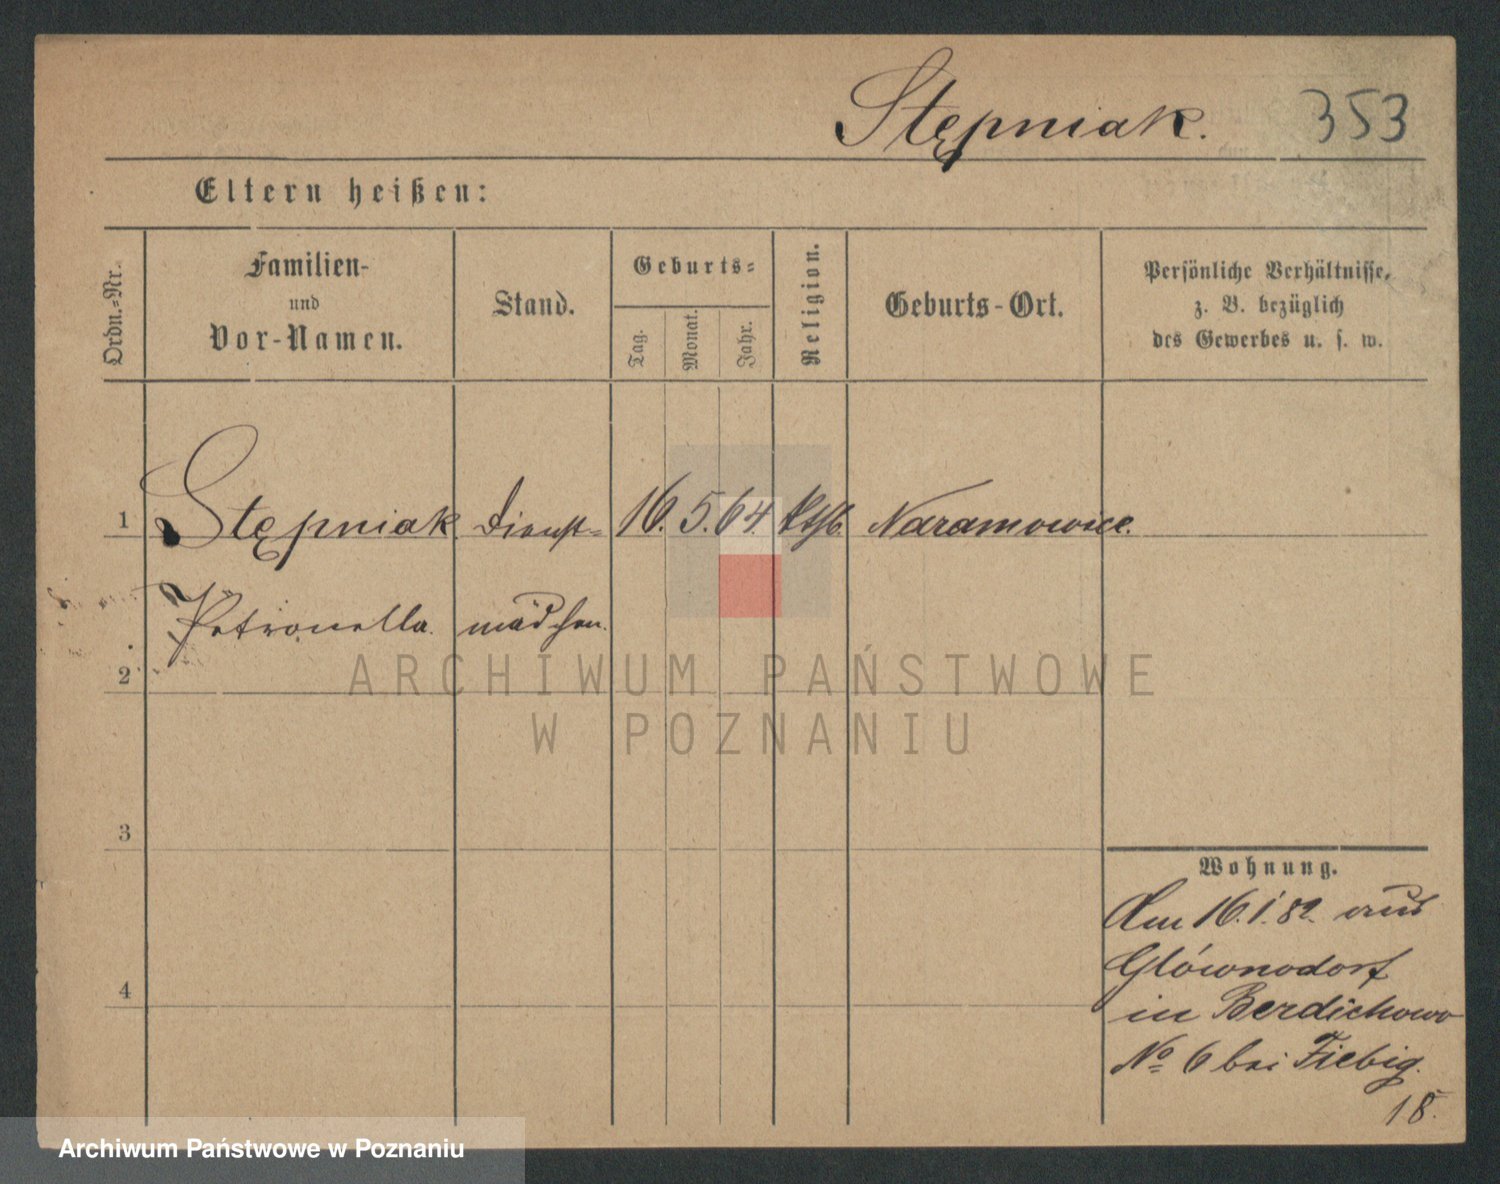 Stępniak. 353
Eltern heißen:
Ordn.-Nr.
Familien-
und
Vor-Namen.
Stand.
Geburts-
Tag.
Monat.
Jahr.
Religion.
Geburts-Ort.
Persönliche Verhältnisse,
z. B. bezüglich
des Gewerbes u. s. w.
1 Stępniak Dienst- 16. 5. 64. kthl. Naramowice.
Petronella. mädchen.
2
ARCHIWUM PAŃSTWOWE
W POZNANIU
3
Wohnung.
Am 16.1.82. aus
Glównodorf
4
in Berdichowo
No 6 bei Fiebig.
18.
Archiwum Państwowe w Poznaniu